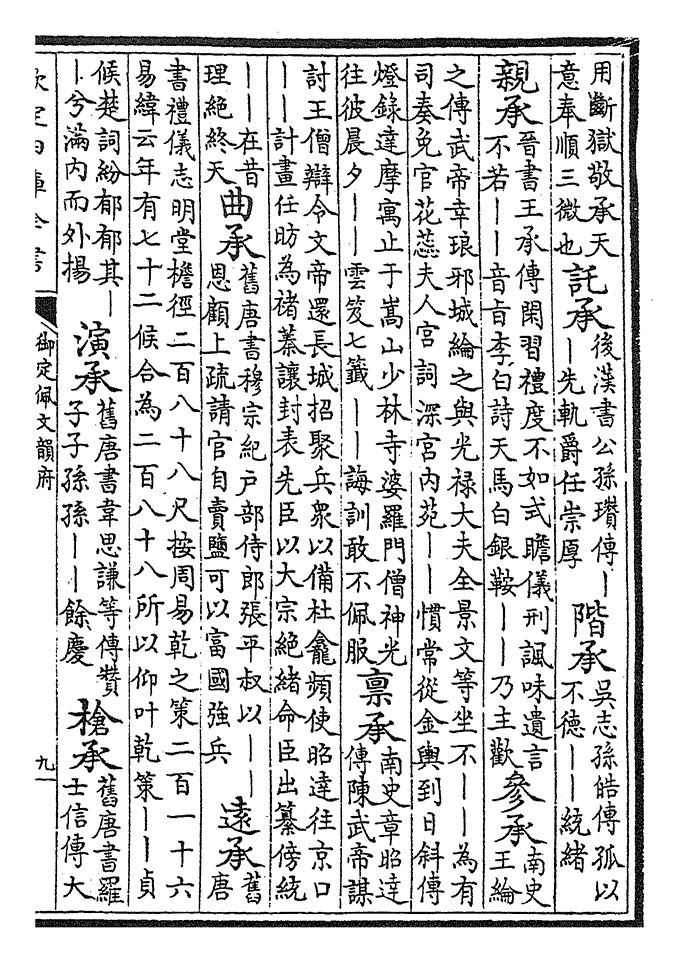 用斷獄敬承天
意奉順三微也
託承
後漢書公孫瓚傳丨
丨先軌爵任崇厚
階承
吳志孫皓傳孤以
不德丨丨統緒
親承
晉書王承傳閑習禮度不如式瞻儀刑諷味遺言
不若丨丨音旨李白詩天馬白銀鞍丨丨乃主歡
參承
南史
王綸
之傳武帝幸琅邪城綸之與光禄大夫全景文等坐不丨丨為有
司奏免官花蕊夫人宫詞深宫内苑丨丨慣常從金輿到日斜傳
燈錄達摩寓止于嵩山少林寺婆羅門僧神光
往彼晨夕丨丨雲笈七籤丨丨誨訓敢不佩服
禀承
南史章昭達
傳陳武帝謀
討王僧辯令文帝還長城招聚兵衆以備杜龕頻使昭達往京口
丨丨計畫任昉為褚蓁讓封表先臣以大宗絶緒命臣出纂傍統
丨丨在昔
理絶終天
曲承
舊唐書穆宗紀户部侍郎張平叔以丨丨
恩顧上疏請官自賣鹽可以富國強兵
遠承
舊
唐
書禮儀志明堂檐徑二百八十八尺按周易乾之策二百一十六
易緯云年有七十二候合為二百八十八所以仰叶乾策丨丨貞
候楚詞紛郁郁其丨
丨兮滿内而外揚
演承
舊唐書韋思謙等傳贊
子子孫孫丨丨餘慶
槍承
舊唐書羅
士信傳大
欽定四庫全書
御定佩文韻府
九一